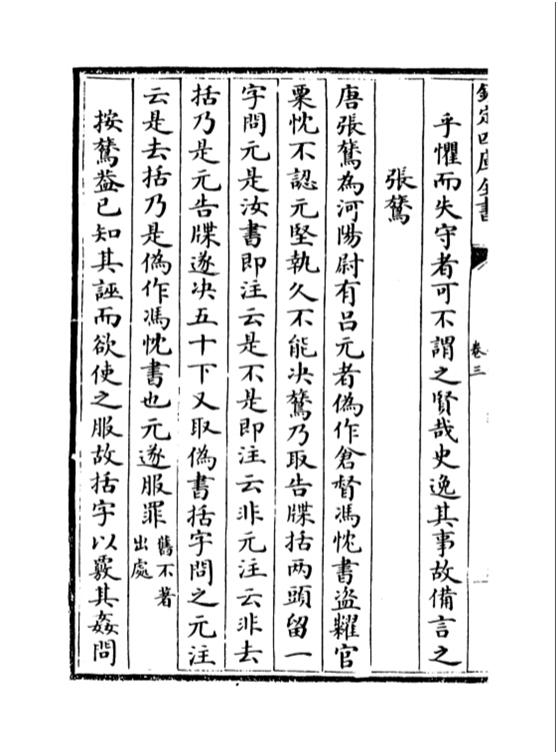 欽定四庫全書
卷三
乎懼而失守者可不謂之賢哉史逸其事故備言之
張鷟
唐張鷟為河陽尉有吕元者偽作倉督馮忱書盜糶官
粟忱不認元堅執久不能决鷟乃取告牒括两頭留一
字問元是汝書即注云是不是即注云非元注云非去
括乃是元告牒遂决五十下又取偽書括字問之元注
云是去括乃是偽作馮忱書也元遂服罪舊不著出處
按鷟葢已知其誣而欲使之服故括字以覈其姦問